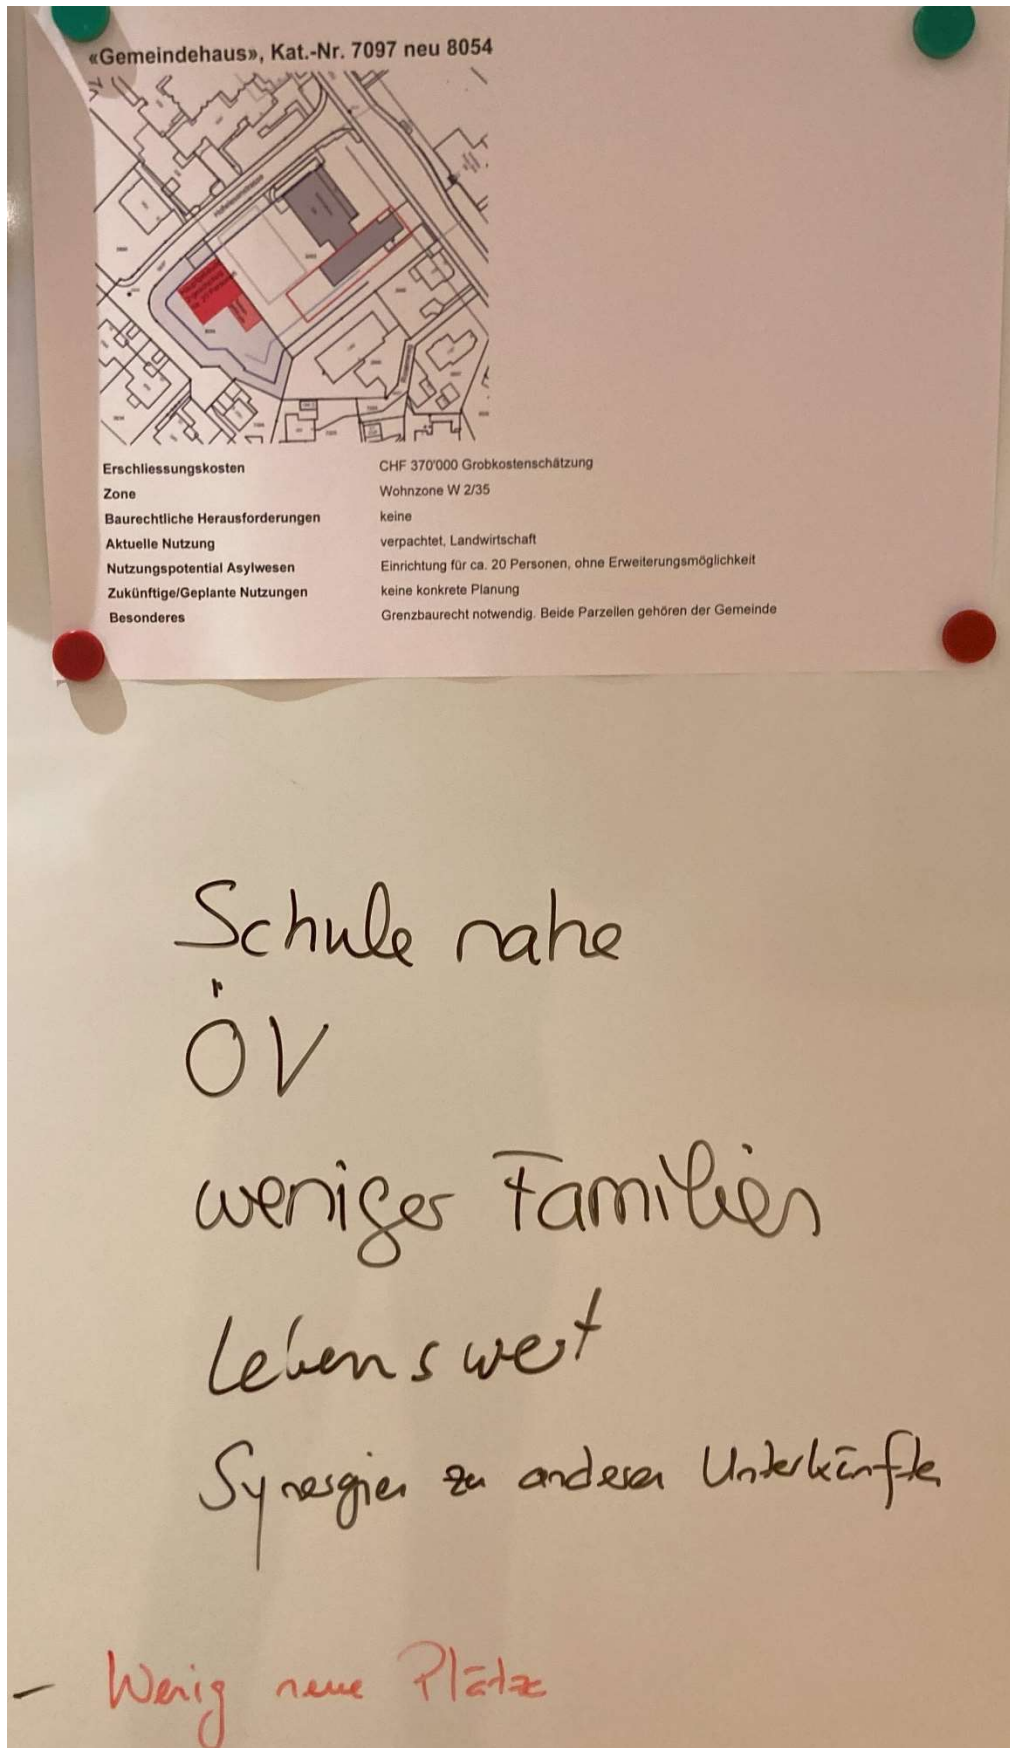 «Gemeindehaus», Kat.-Nr. 7097 neu 8054
Erschliessungskosten CHF 370'000 Grobkostenschätzung
Zone Wohnzone W 2/35
Baurechtliche Herausforderungen keine
Aktuelle Nutzung verpachtet, Landwirtschaft
Nutzungspotential Asylwesen Einrichtung für ca. 20 Personen, ohne Erweiterungsmöglichkeit
Zukünftige/Geplante Nutzungen keine konkrete Planung
Besonderes Grenzbaurecht notwendig. Beide Parzellen gehören der Gemeinde
Schule nahe
ÖV
weniger Familien
Lebenswert
Synergien zu anderen Unterkünften
- Wenig neue Plätze